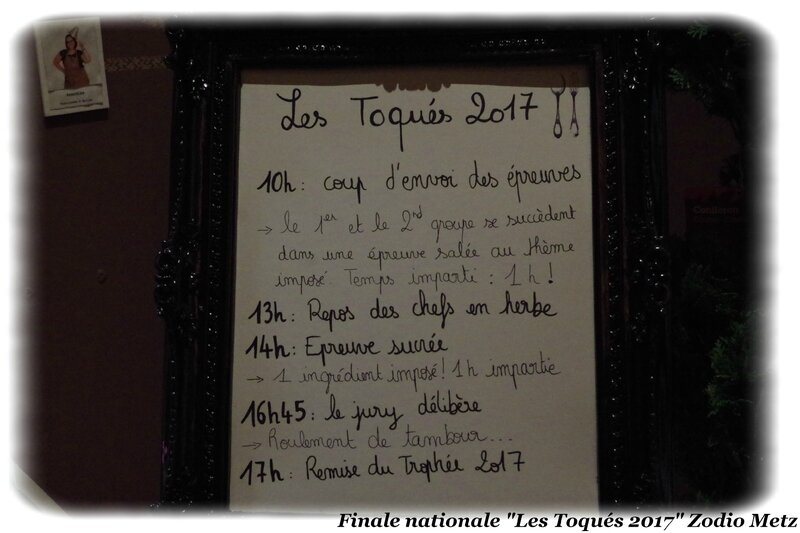 Les Toqués 2017
10h : coup d'envoi des épreuves
→ le 1er et le 2nd groupe se succèdent
dans une épreuve salée au thème
imposé. Temps imparti : 1h !
13h : Repos des chefs en herbe
14h : Epreuve sucrée
→ 1 ingrédient imposé ! 1h impartie
16h45 : le jury délibère
→ Roulement de tambour...
17h : Remise du Trophée 2017
Finale nationale "Les Toqués 2017" Zodio Metz